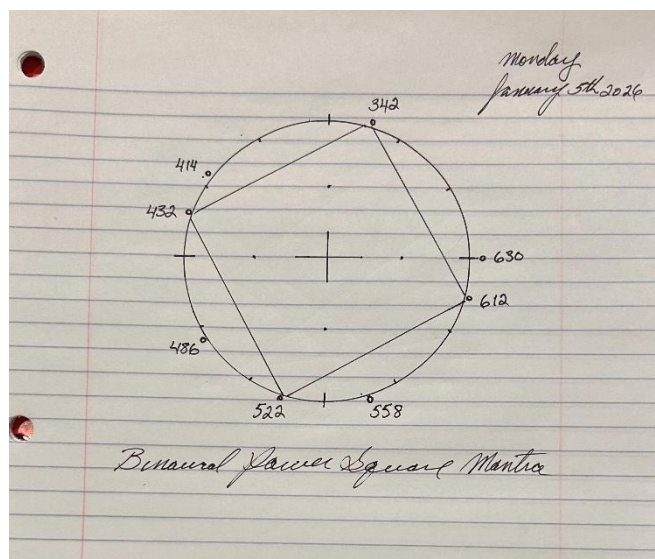 Monday
January 5th 2026
342
414
432
630
612
486
522
558
Binaural Power Square Mantra